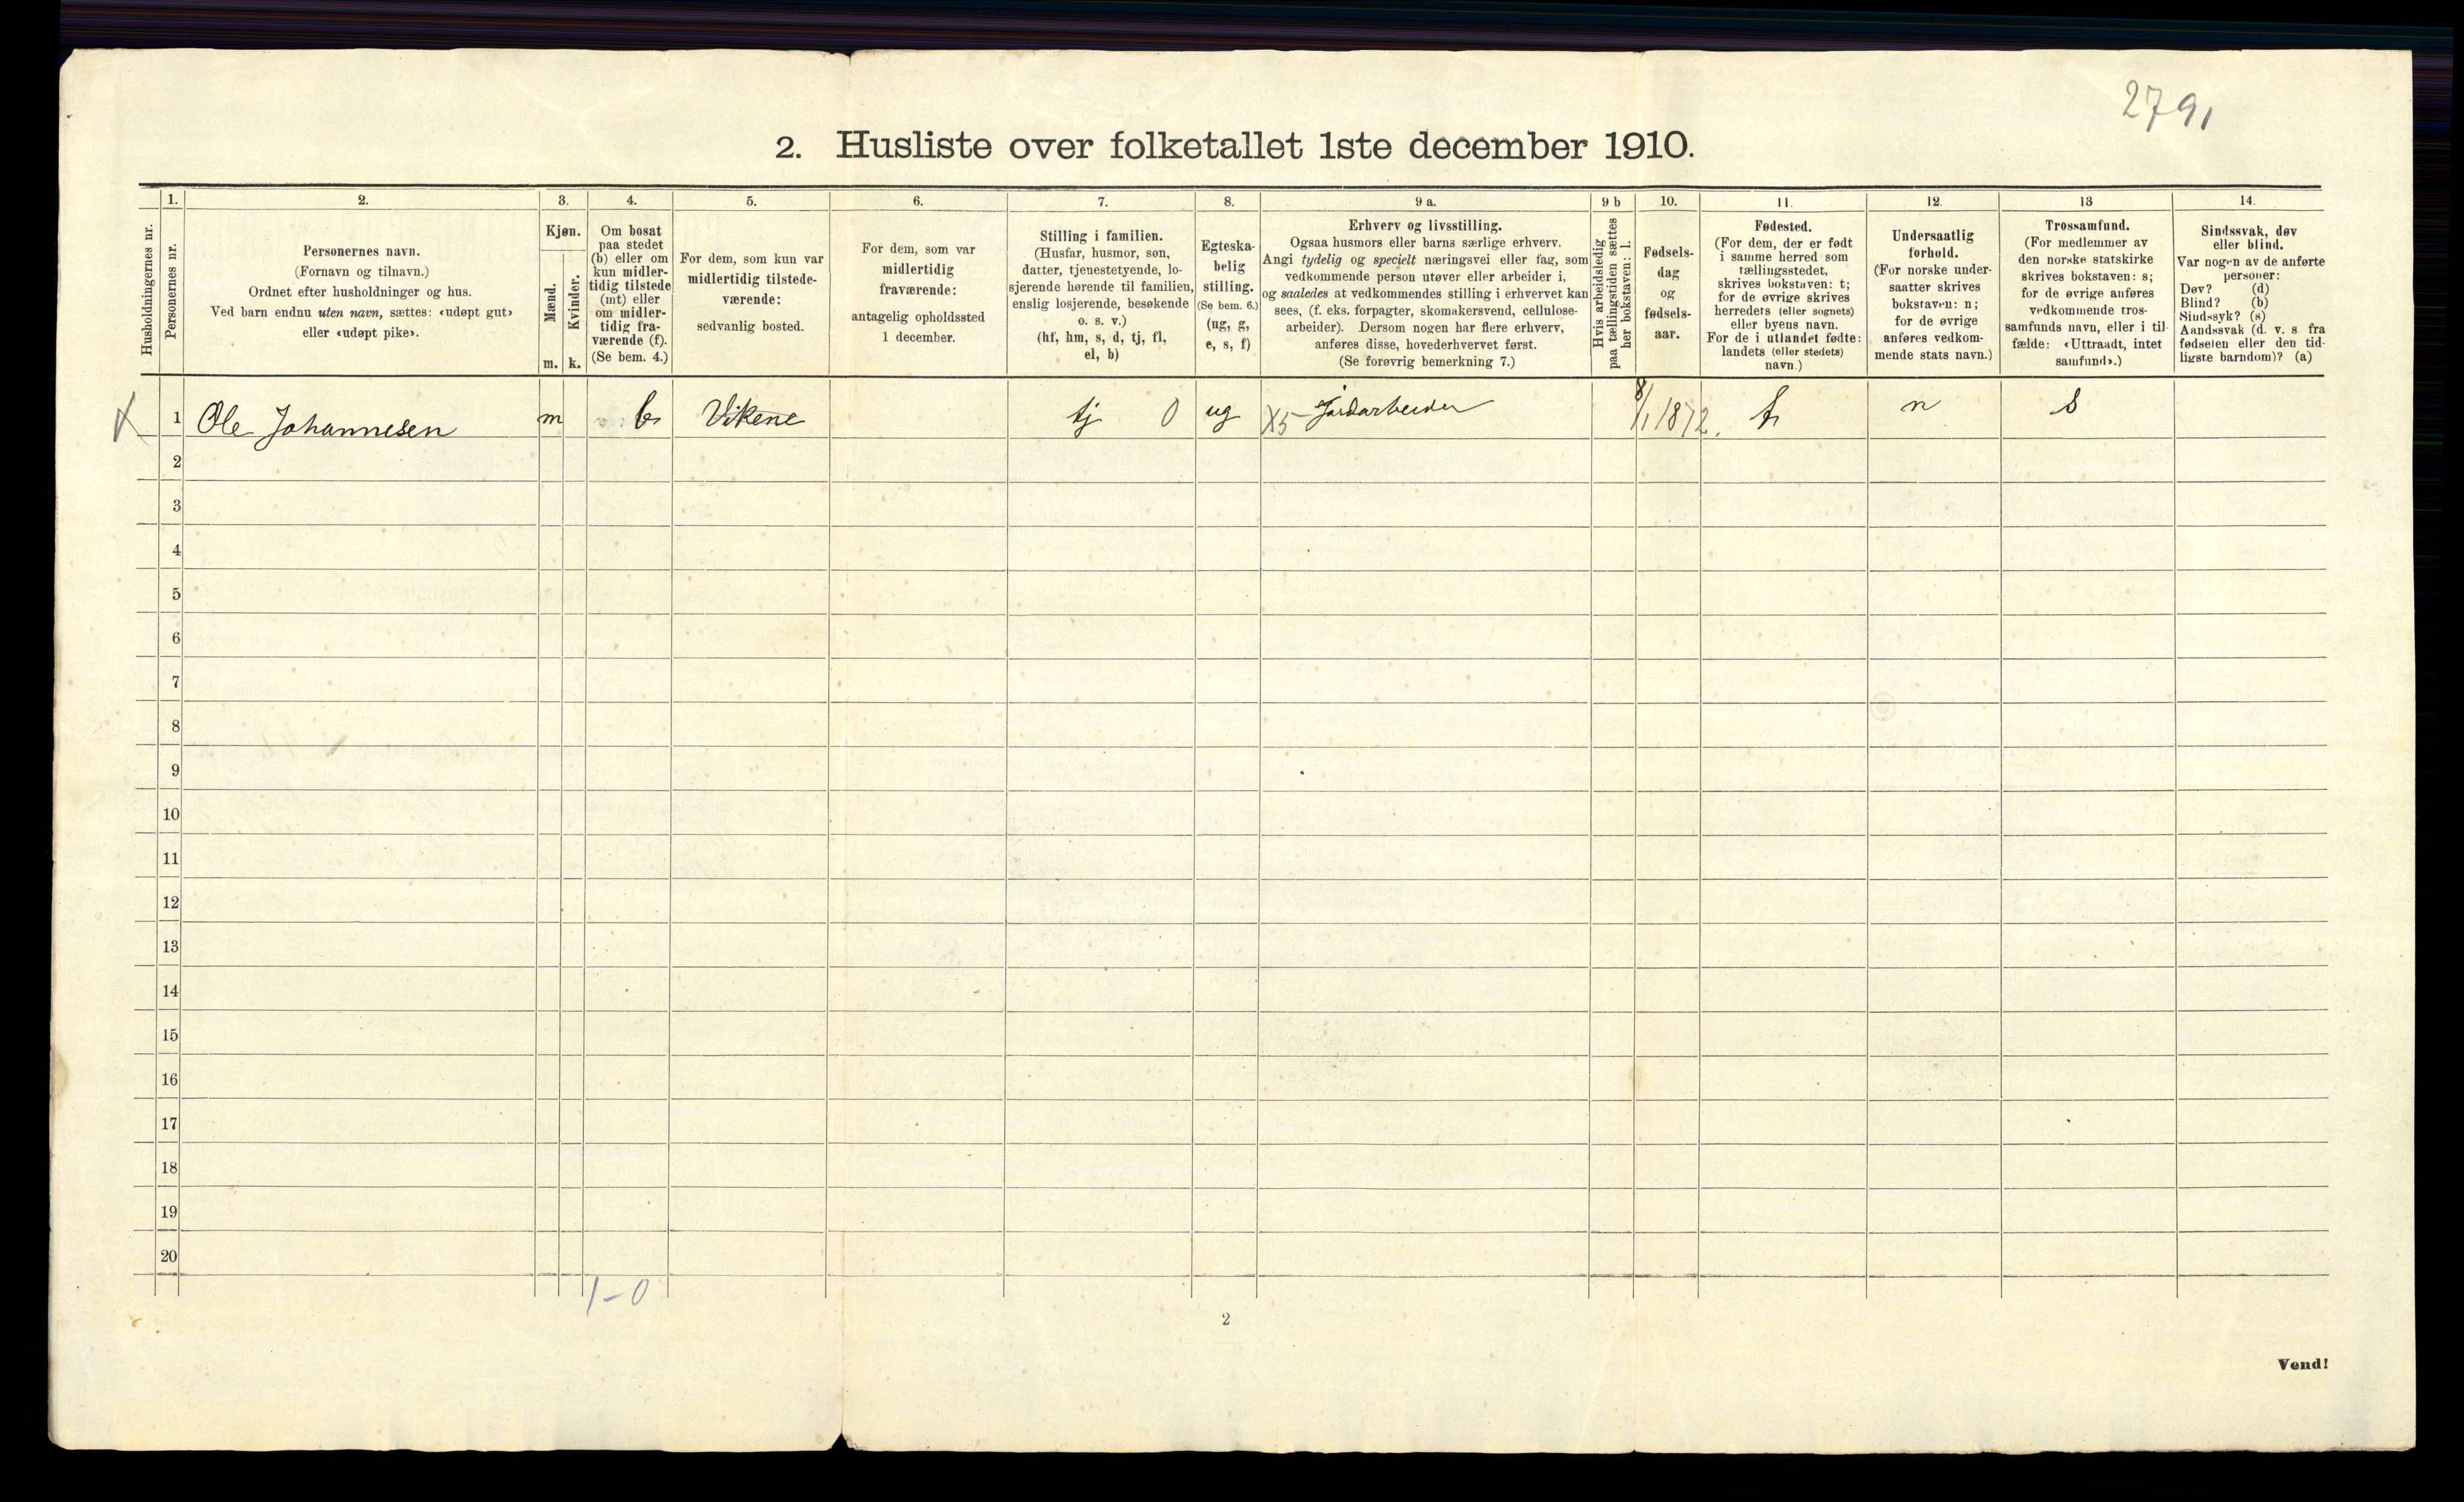 2791
2. Husliste over folketallet 1ste december 1910.
Husholdningernes nr.
1.
Personernes nr.
2.
Personernes navn.
(Fornavn og tilnavn.)
Ordnet efter husholdninger og hus.
Ved barn endnu uten navn, sættes: «udøpt gut»
eller «udøpt pike».
3.
Kjøn.
Mænd.
Kvinder.
m.
k.
4.
Om bosat
paa stedet
(b) eller om
kun midler-
tidig tilstede
(mt) eller
om midler-
tidig fra-
værende (f).
(Se bem. 4.)
5.
For dem, som kun var
midlertidig tilstede-
værende:
sedvanlig bosted.
6.
For dem, som var
midlertidig
fraværende:
antagelig opholdssted
1 december.
7.
Stilling i familien.
(Husfar, husmor, søn,
datter, tjenestetyende, lo-
sjerende hørende til familien,
enslig losjerende, besøkende
o. s. v.)
(hf, hm, s, d, tj, fl,
el, b)
8.
Egteska-
belig
stilling.
(Se bem. 6.)
(ug, g,
e, s, f)
9 a.
Erhverv og livsstilling.
Ogsaa husmors eller barns særlige erhverv.
Angi tydelig og specielt næringsvei eller fag, som
vedkommende person utøver eller arbeider i,
og saaledes at vedkommendes stilling i erhvervet kan
sees, (f. eks. forpagter, skomakersvend, cellulose-
arbeider). Dersom nogen har flere erhverv,
anføres disse, hovederhvervet først.
(Se forøvrig bemerkning 7.)
9 b
Hvis arbeidsledig
paa tællingstiden sættes
her bokstaven: l.
10.
Fødsels-
dag
og
fødsels-
aar.
11.
Fødested.
(For dem, der er født
i samme herred som
tællingsstedet,
skrives bokstaven: t;
for de øvrige skrives
herredets (eller sognets)
eller byens navn.
For de i utlandet fødte:
landets (eller stedets)
navn.)
12.
Undersaatlig
forhold.
(For norske under-
saatter skrives
bokstaven: n;
for de øvrige
anføres vedkom-
mende stats navn.)
13
Trossamfund.
(For medlemmer av
den norske statskirke
skrives bokstaven: s;
for de øvrige anføres
vedkommende tros-
samfunds navn, eller i til-
fælde: «Uttraadt, intet
samfund».)
14.
Sindssvak, døv
eller blind.
Var nogen av de anførte
personer:
Døv? (d)
Blind? (b)
Sindssyk? (s)
Aandssvak (d. v. s fra
fødselen eller den tid-
ligste barndom)? (a)
X 1 Ole Johannesen m b Vikene tj 0 ug X5 Jordarbeider 8/1 1872. t n s
2
3
4
5
6
7
8
9
10
11
12
13
14
15
16
17
18
19
20
1-0
2
Vend!